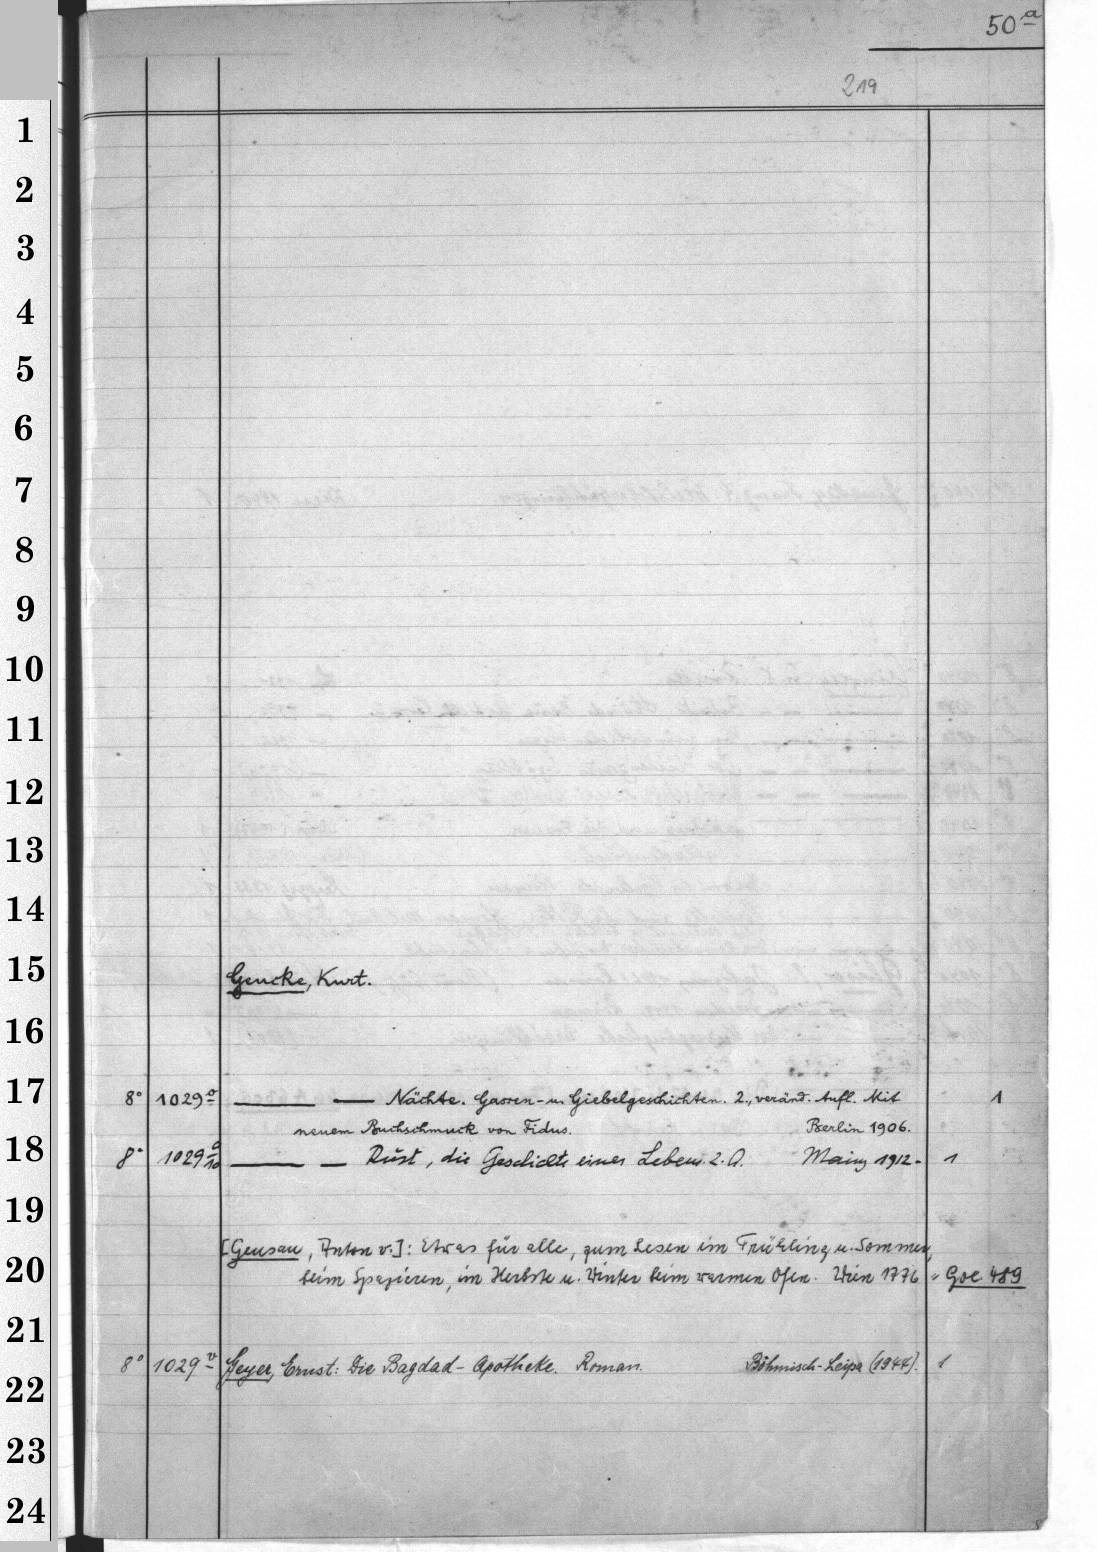 50a
219
1
2
3
4
5
6
7
8
9
10
11
12
13
14
15
Geucke, Kurt.
16
17
8° 1029 a — — Nächte. Gassen- u. Giebelgeschichten. 2., veränd. Aufl. Mit 1
neuem Buchschmuck von Fidus. Berlin 1906.
18
8° 1029 a/10 — — Rust, die Geschichte eines Lebens. 2. A. Mainz 1912. 1
19
[Geusau, Anton v.]: Etwas für alle, zum Lesen im Frühling u. Sommer,
20
beim Spazieren, im Herbste u. Winter beim warmen Ofen. Wien 1776 = Goe. 489
21
8° 1029 v Geyer, Ernst: Die Bagdad-Apotheke. Roman. Böhmisch-Leipa (1944). 1
22
23
24